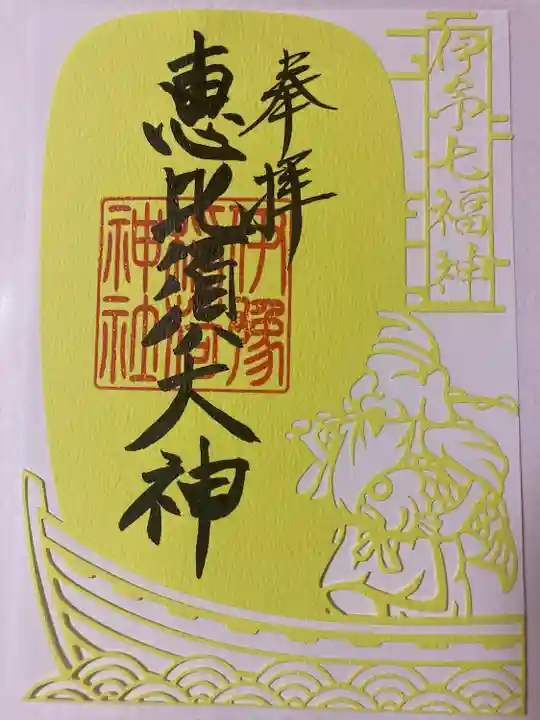 伊予七福神
奉拝
恵比須大神
伊豫
稲荷
神社